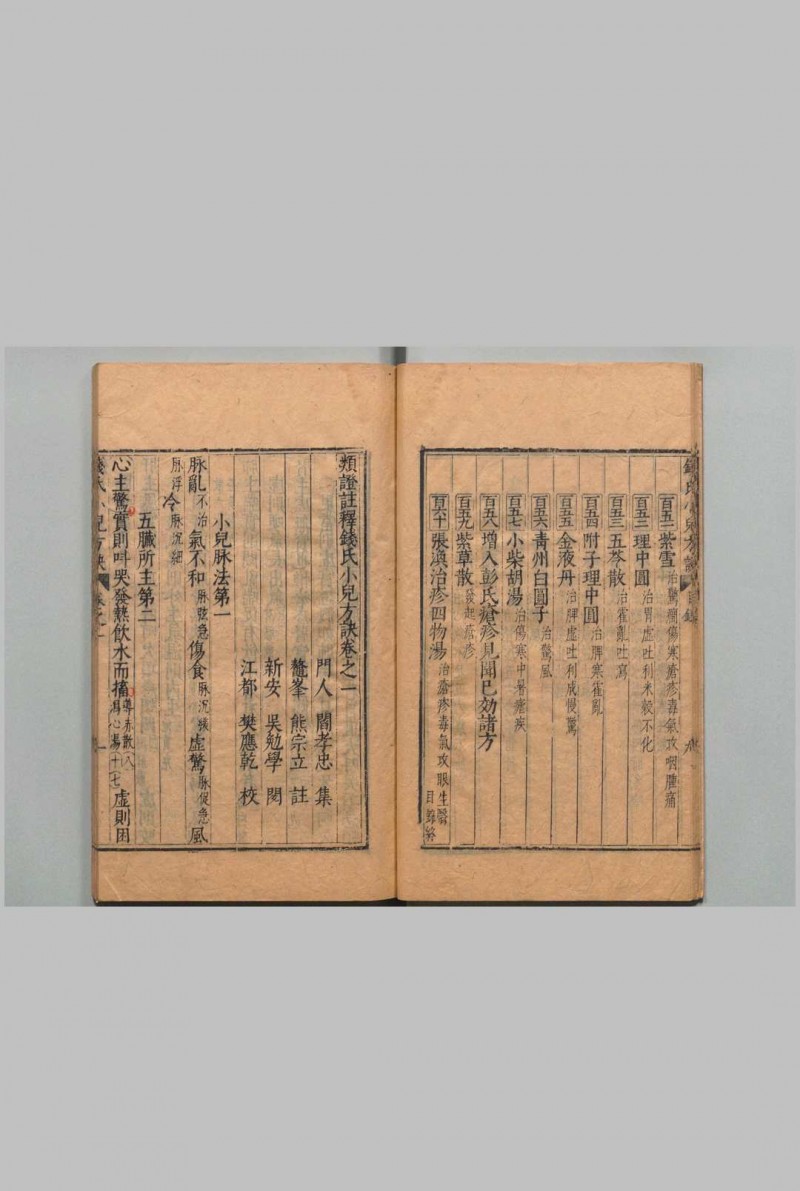 百五一紫雪治驚癎傷寒瘡疹毒氣攻咽腫痛
百五二理中圓治胃虛吐利米穀不化
百五三五苓散治霍亂吐瀉
百五四附子理中圓治脾寒霍亂
百五五金液丹治脾虛吐利成慢驚
百五六青州白圓子治驚風
百五七小柴胡湯治傷寒中暑瘡疾
百五八增入彭氏瘡疹見聞已効諸方
百五九紫草散發起瘡疹
百六十張渙治疹四物湯治瘡疹毒氣攻眼生翳
目錄終
類證註釋錢氏小兒方訣卷之一
門人 閻孝忠 集
鼇峯 熊宗立 註
新安 吳勉學 閱
江都 樊應乾 校
小兒脉法第一
脉亂不治氣不和脉弦急傷食脉沉緩虛驚脉促急風
脉浮冷脉沉細
五臟所主第二
心主驚實則呌哭發熱飲水而搐導赤散八瀉心湯十七虛則困
錢氏小兒方訣 卷之一 一